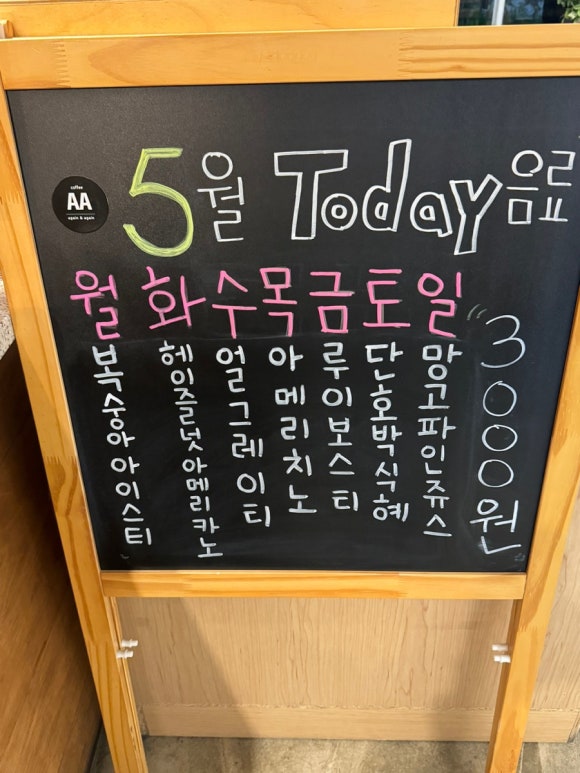 coffee
AA
again & again
5월 Today 음료
월 화 수 목 금 토 일
복숭아아이스티
헤이즐넛아메리카노
얼그레이티
아메리치노
루이보스티
단호박식혜
망고파인쥬스
3000원